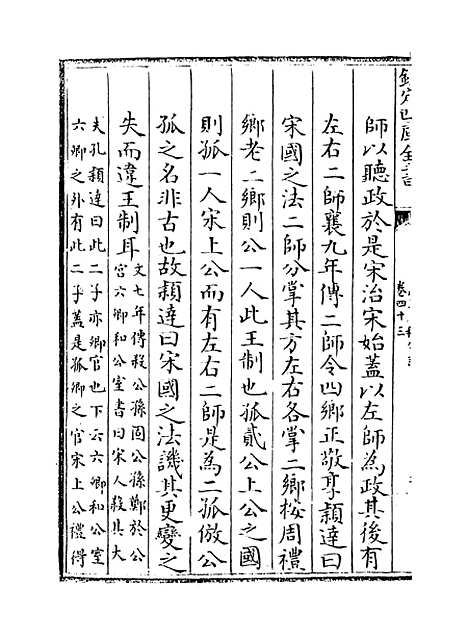 欽定四庫全書
卷四十三
師以聽政於是宋治宋始蓋以左師為政其後有
左右二師襄九年傳二師令四鄉正敬享穎達曰
宋國之法二師分掌其方左右各掌二鄉桉周禮
鄉老二鄉則公一人此王制也孤貳公上公之國
則孤一人宋上公而有左右二師是為二孤倣公
孤之名非古也故穎達曰宋國之法譏其更變之
失而違王制耳
文七年傳殺公孫固公孫鄭於公
宮六卿和公室書曰宋人殺其大
夫孔穎達曰此二子亦卿官也下云六卿和公室
六卿之外有此二子蓋是孤卿之官宋上公禮得